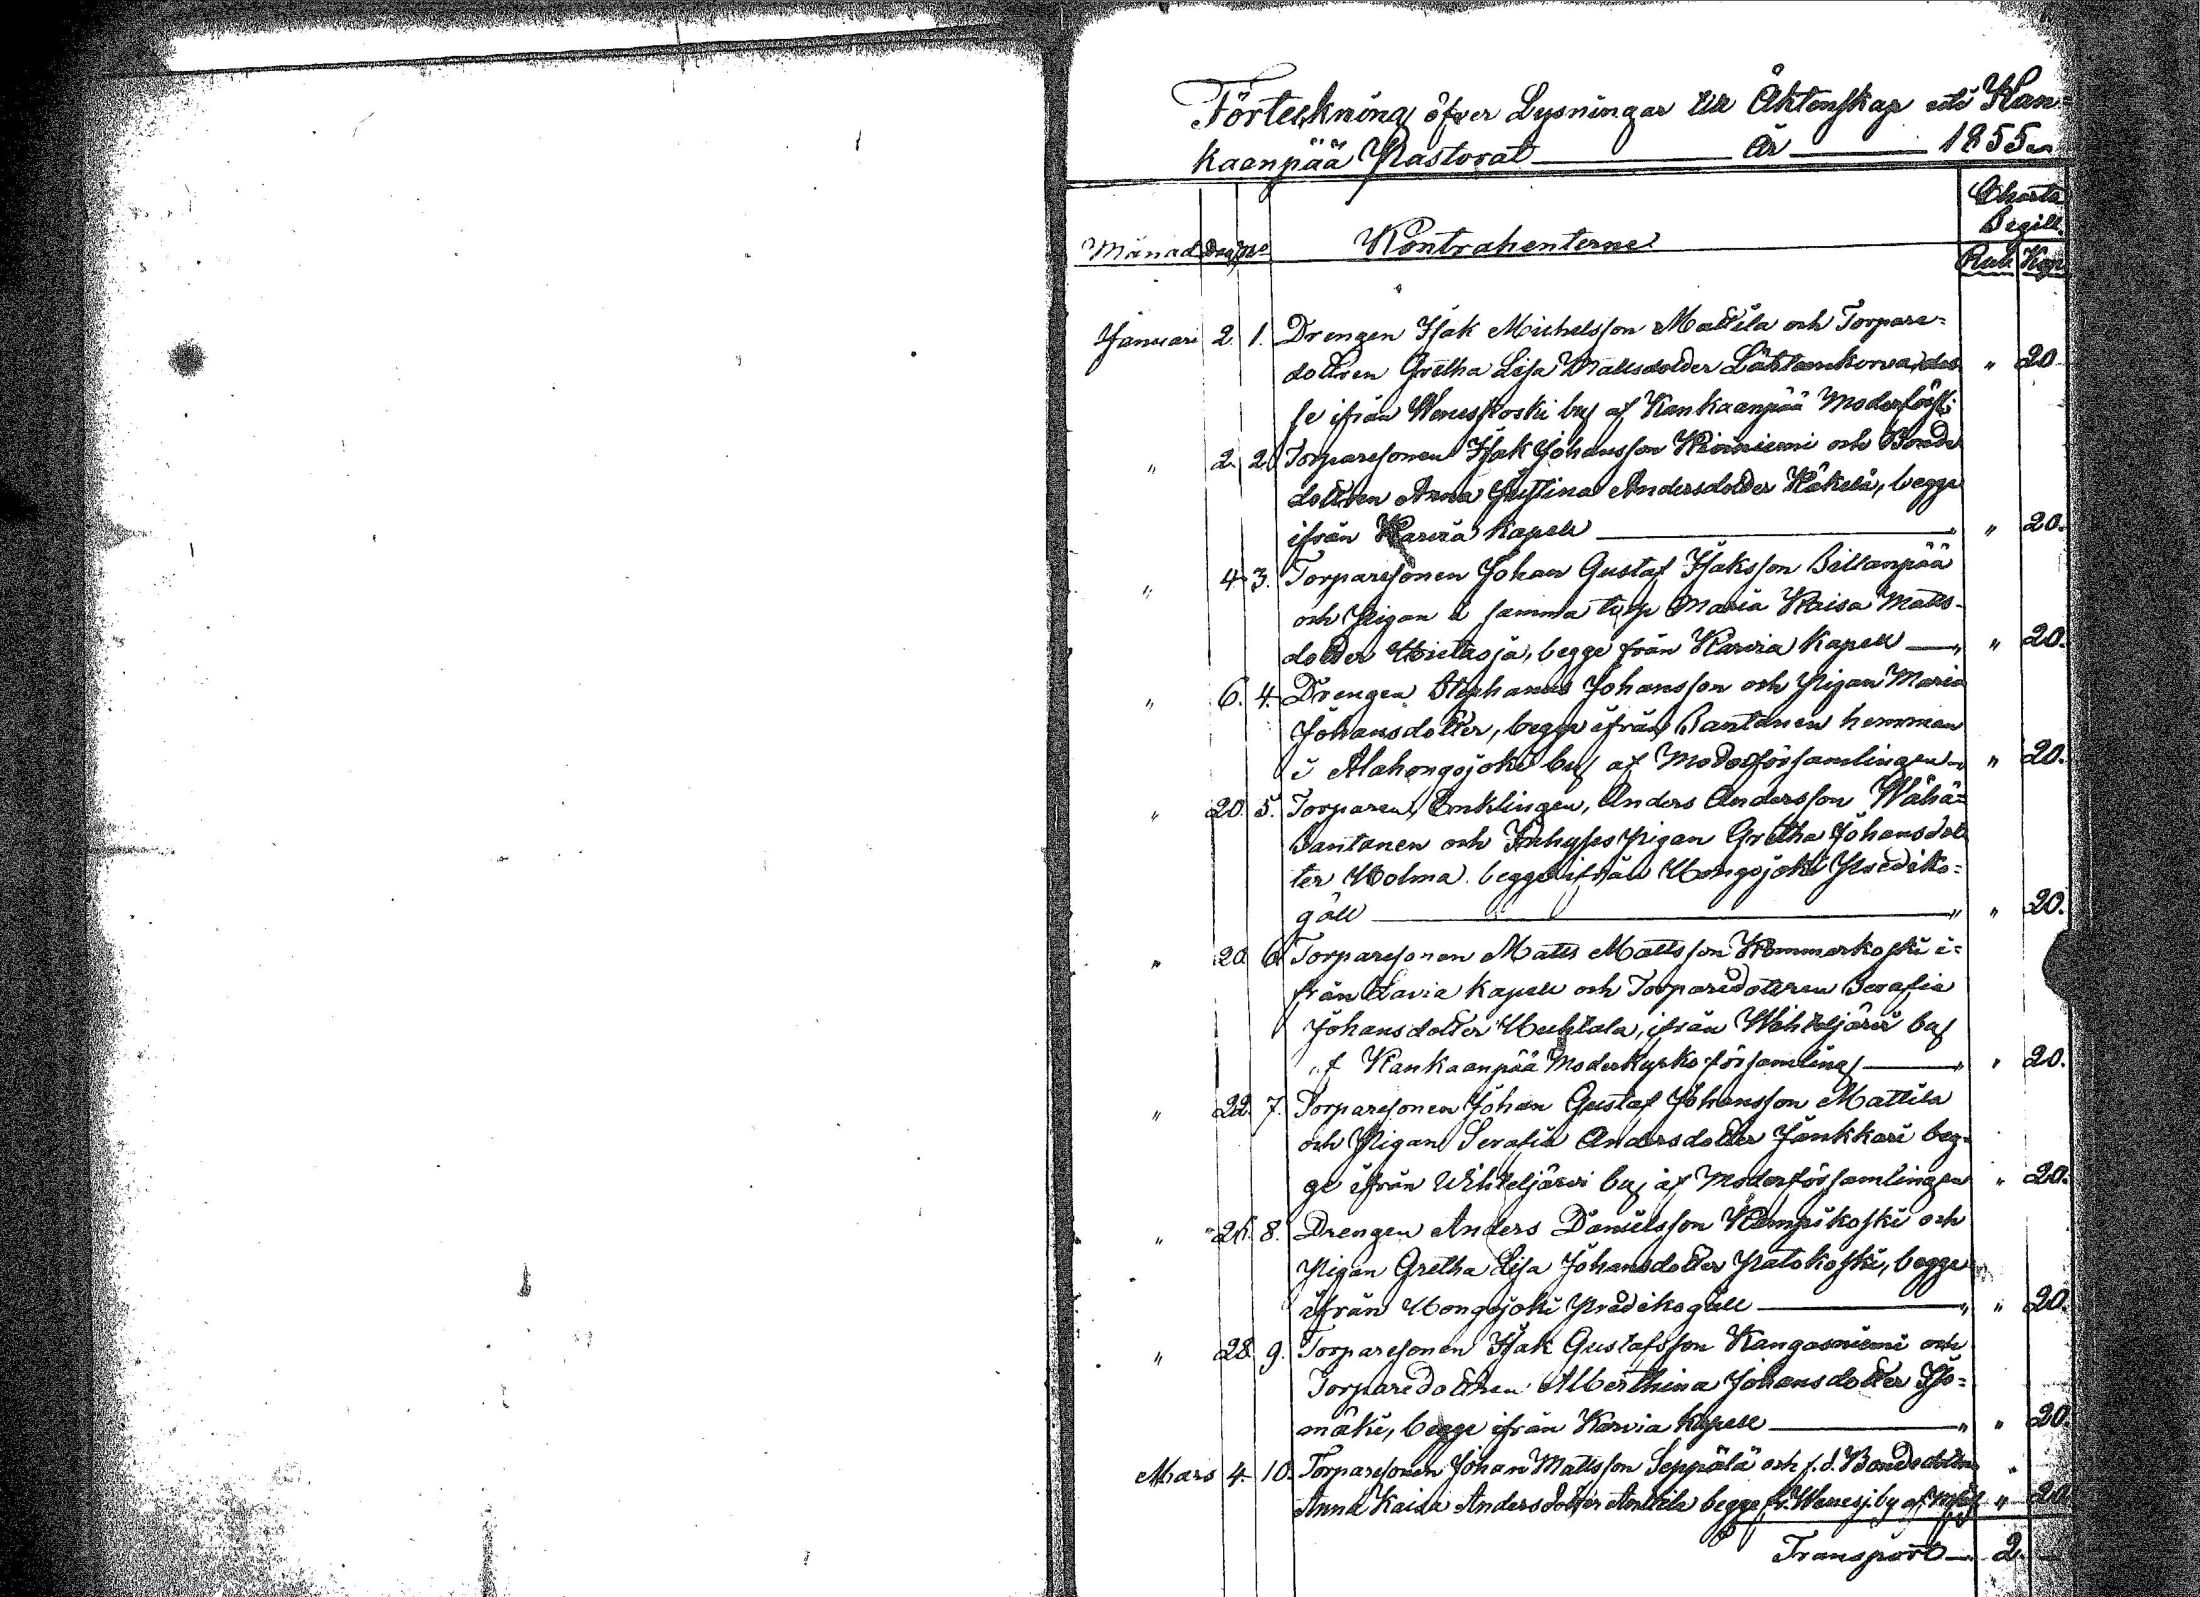 Förteckning öfver Lysningar till Äktenskap uti Kan=
kaanpää Pastorat År 1855
Charta
Sigill.
Månad Dag No Kontrahenterne
Rub. Kop.
Januari 2. 1. Drengen Isak Michelsson Mattila och Torpare=
dottren Gretha Lisa Mattsdotter " 20
se ifrån Weneskoski by af Kankaanpää Moderförs:
" 2. 2. Torparesonen Isak Johansson Kiviniemi och Bonde
dottren Anna Justina Andersdotter Käkelä, begge
ifrån Karvia Kapell " " 20.
" 4. 3. Torparesonen Johan Gustaf Isaksson Sillanpää
och Pigan i samma torp Maria Kaisa Matts-
dotter Hietaoja, begge från Karvia Kapell " " 20.
" 6. 4. Drengen Stephanus Johansson och Pigan Maria
Johansdotter, begge ifrån Santanen hemman
i Alahongojoki by af Moderförsamlingen " " 20.
" 20. 5. Torparen, Enklingen, Anders Andersson Wähä=
Santanen och Inhyses Pigan Gretha Johansdot
ter Holma begge ifrån Hongojoki Prediko=
gäll " " 20.
" 20. 6. Torparesonen Matts Mattsson i=
från Lavia Kapell och Torparedottren Serafia
Johansdotter Huhtala, ifrån Wihteljärvi by
af Kankaanpää Moderkyrko församling " " 20.
" 22. 7. Torparesonen Johan Gustaf Johansson Mattila
och Pigan Serafia Andersdotter Jänkkäri beg=
ge ifrån Wihteljärvi by af Moderförsamlingen " 20.
" 26. 8. Drengen Anders Danielsson Kämpikoski och
Pigan Gretha Lisa Johansdotter Patokoski, begge
ifrån Hongojoki Predikogäll " " 20.
" 28. 9. Torparesonen Isak Gustafsson Kangasniemi och
Torparedottren Alberthina Johansdotter Iso=
mäki, begge ifrån Karvia Kapell " " 20.
Mars 4. 10. Torparesonen Johan Mattsson Seppälä och f.d. Bondedottren
Anna Kaisa Andersdotter Anttila begge fr. Wenesj. by af " 20
Transport 2. —